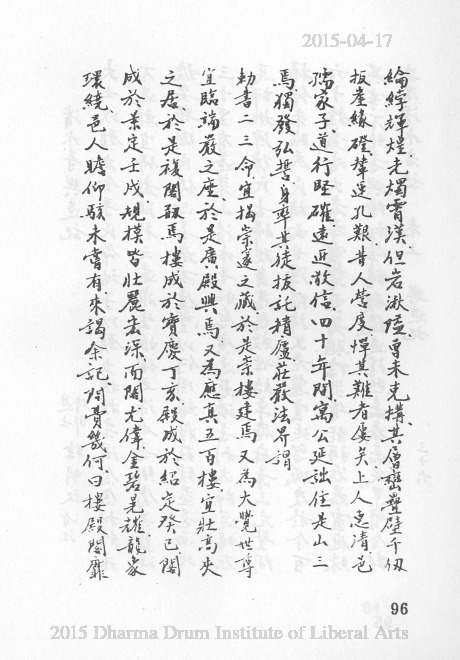 2015-04-17
綸綍輝煌光燭霄漢但岩湫隘曾未克搆其僧巒疊壁千仞
扳崖緣磴輦運孔艱昔人營度憚其難者屢矣上人惠清邑
孺家子道行堅確遠近敬信四十年間寓公延詘住是山三
焉獨發弘誓身率其徒拔託精廬莊嚴法界謂
勅書二三命宜揭崇邃之藏於是崇樓建焉又為大覺世尊
宜臨端嚴之座於是廣殿興焉又為應真五百棲宜壯高夾
之居於是複閣翼焉樓成於寶慶丁亥殿成於紹定癸巳閣
成於景定壬戌規模皆壯麗宏深而閣尤偉金碧晃耀龍象
環繞邑人瞻仰駭未嘗有來謁余記問費幾何曰樓殿閣靡
96
2015 Dharma Drum Institute of Liberal Arts